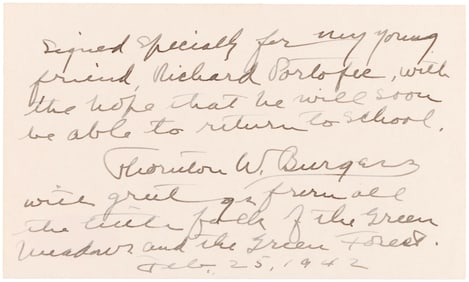 Signed specially for my young
friend, Richard Portofee, with
the hope that he will soon
be able to return to school.
Thornton W. Burgess
with greetings from all
the little folk of the Green
Meadows and the Green Forest.
Feb. 25, 1942